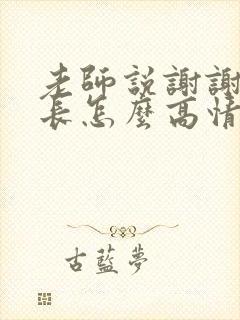 老師說謝謝
長怎麼高情
古藍夢